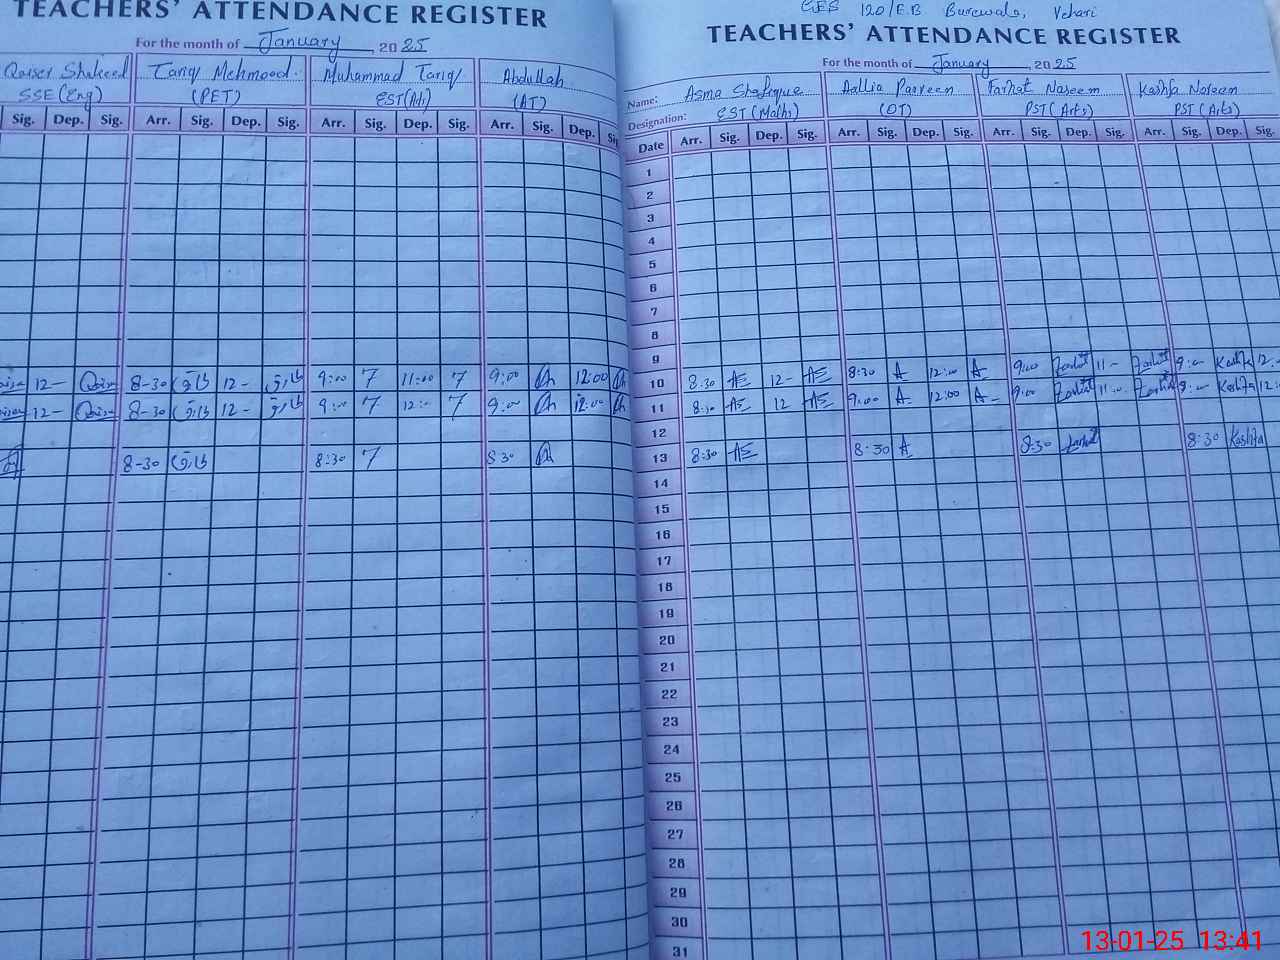 TEACHERS' ATTENDANCE REGISTER
For the month of January, 2025
Qaiser Shakeel Tariq Mehmood. Muhammad Tariq Abdullah
SSE (Eng) (PET) EST (Arti) (AT)
Sig. Dep. Sig. Arr. Sig. Dep. Sig. Arr. Sig. Dep. Sig. Arr. Sig. Dep. Si
12- Qaiser 8-30 طارق 12- طارق 9:00 7 11:00 7 9:00 12:00
12- Qaiser 8-30 طارق 12- طارق 9:00 7 12:00 7 9:00 12:00
8-30 طارق 8:30 7 8 30
GES 120/E.B Burewala, Vehari
TEACHERS' ATTENDANCE REGISTER
For the month of January, 2025
Name: Asma Shafique Aallia Parveen Farhat Naseem Kashfa Noreen
Designation: EST (Math) (OT) PST (Arts) PST (Arts)
Date Arr. Sig. Dep. Sig. Arr. Sig. Dep. Sig. Arr. Sig. Dep. Sig. Arr. Sig. Dep. Sig.
1
2
3
4
5
6
7
8
9
10 8:30 AS 12- AS 8:30 A 12:00 A 9:00 Farhat 11- Farhat 9:00 Kashfa 12.
11 8:30 AS 12 AS 9:00 A 12:00 A 9:00 Farhat 11:00 Farhat 9:00 Kashfa 12:0
12
13 8:30 AS 8:30 A 8:30 Farhat 8:30 Kashfa
14
15
16
17
18
19
20
21
22
23
24
25
26
27
28
29
30
31
13-01-25 13:41